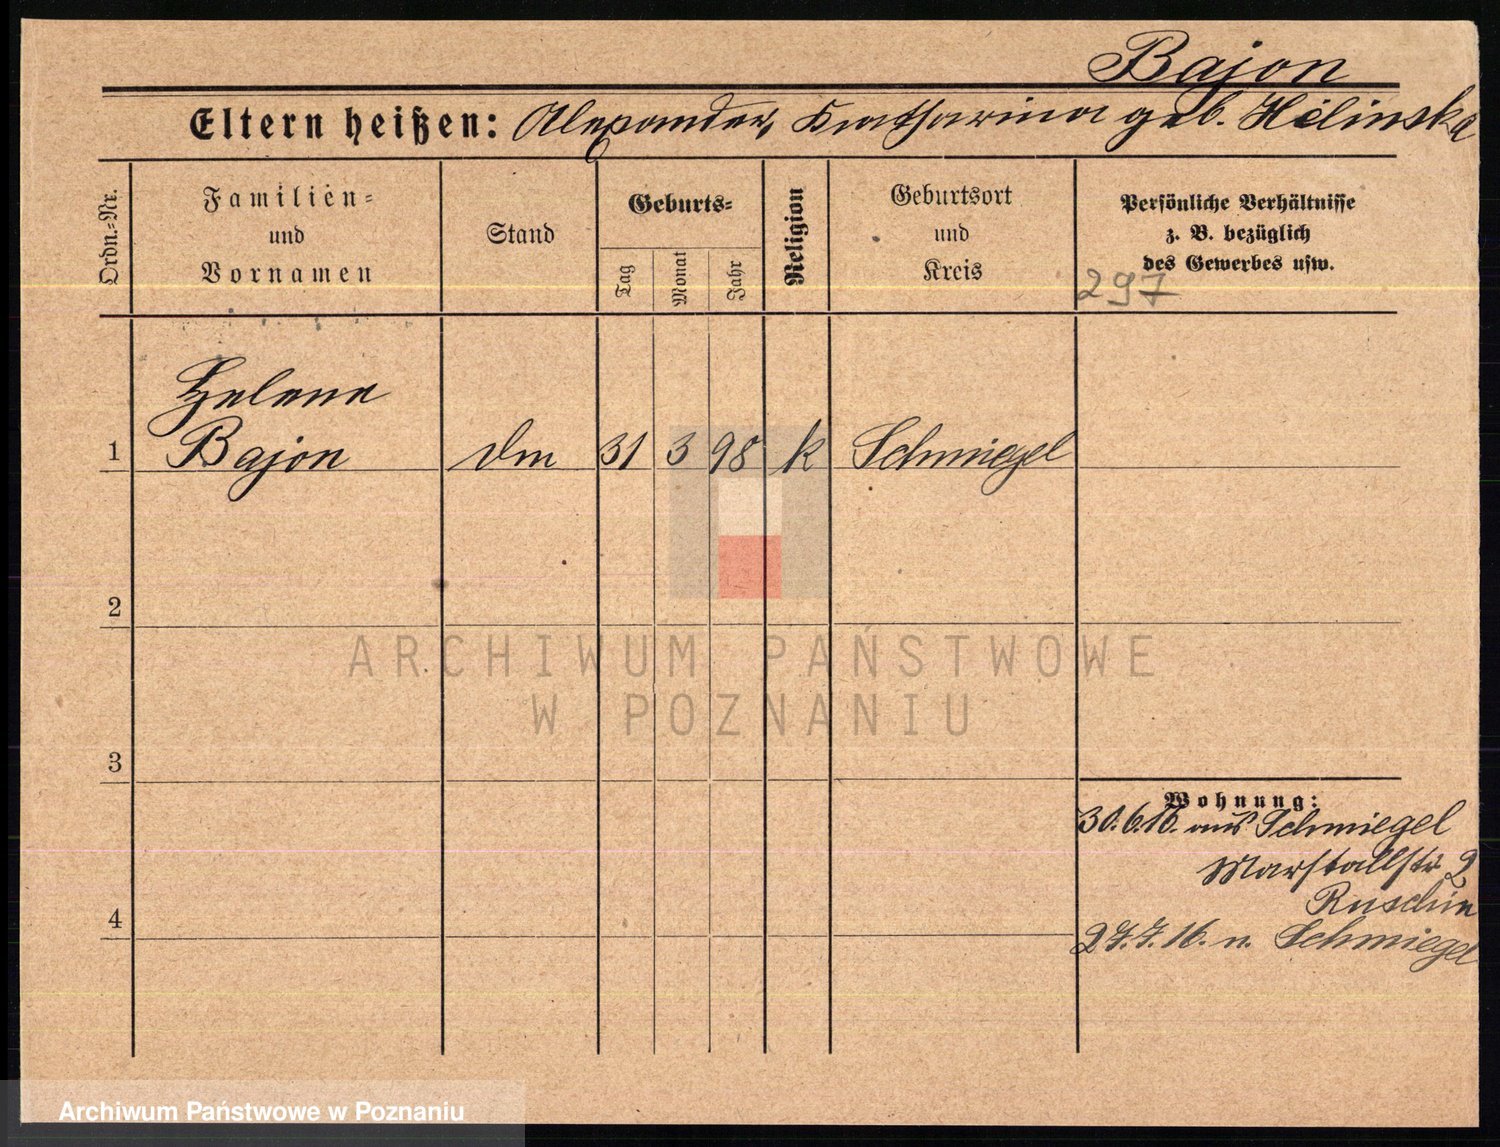 Bajon
Eltern heißen: Alexander, Katharina geb. Hilinska
Ordn.-Nr.
Familien-
und
Vornamen
Stand
Geburts-
Tag
Monat
Jahr
Religion
Geburtsort
und
Kreis
Persönliche Verhältnisse
z. B. bezüglich
des Gewerbes usw.
297
Helene
1 Bajon dm 31 3 98 k Schmiegel
2
ARCHIWUM PAŃSTWOWE
W POZNANIU
3
Wohnung:
30.6.16. aus Schmiegel
Marstallstr 2
Ruschin
4
27.7.16. n. Schmiegel
Archiwum Państwowe w Poznaniu